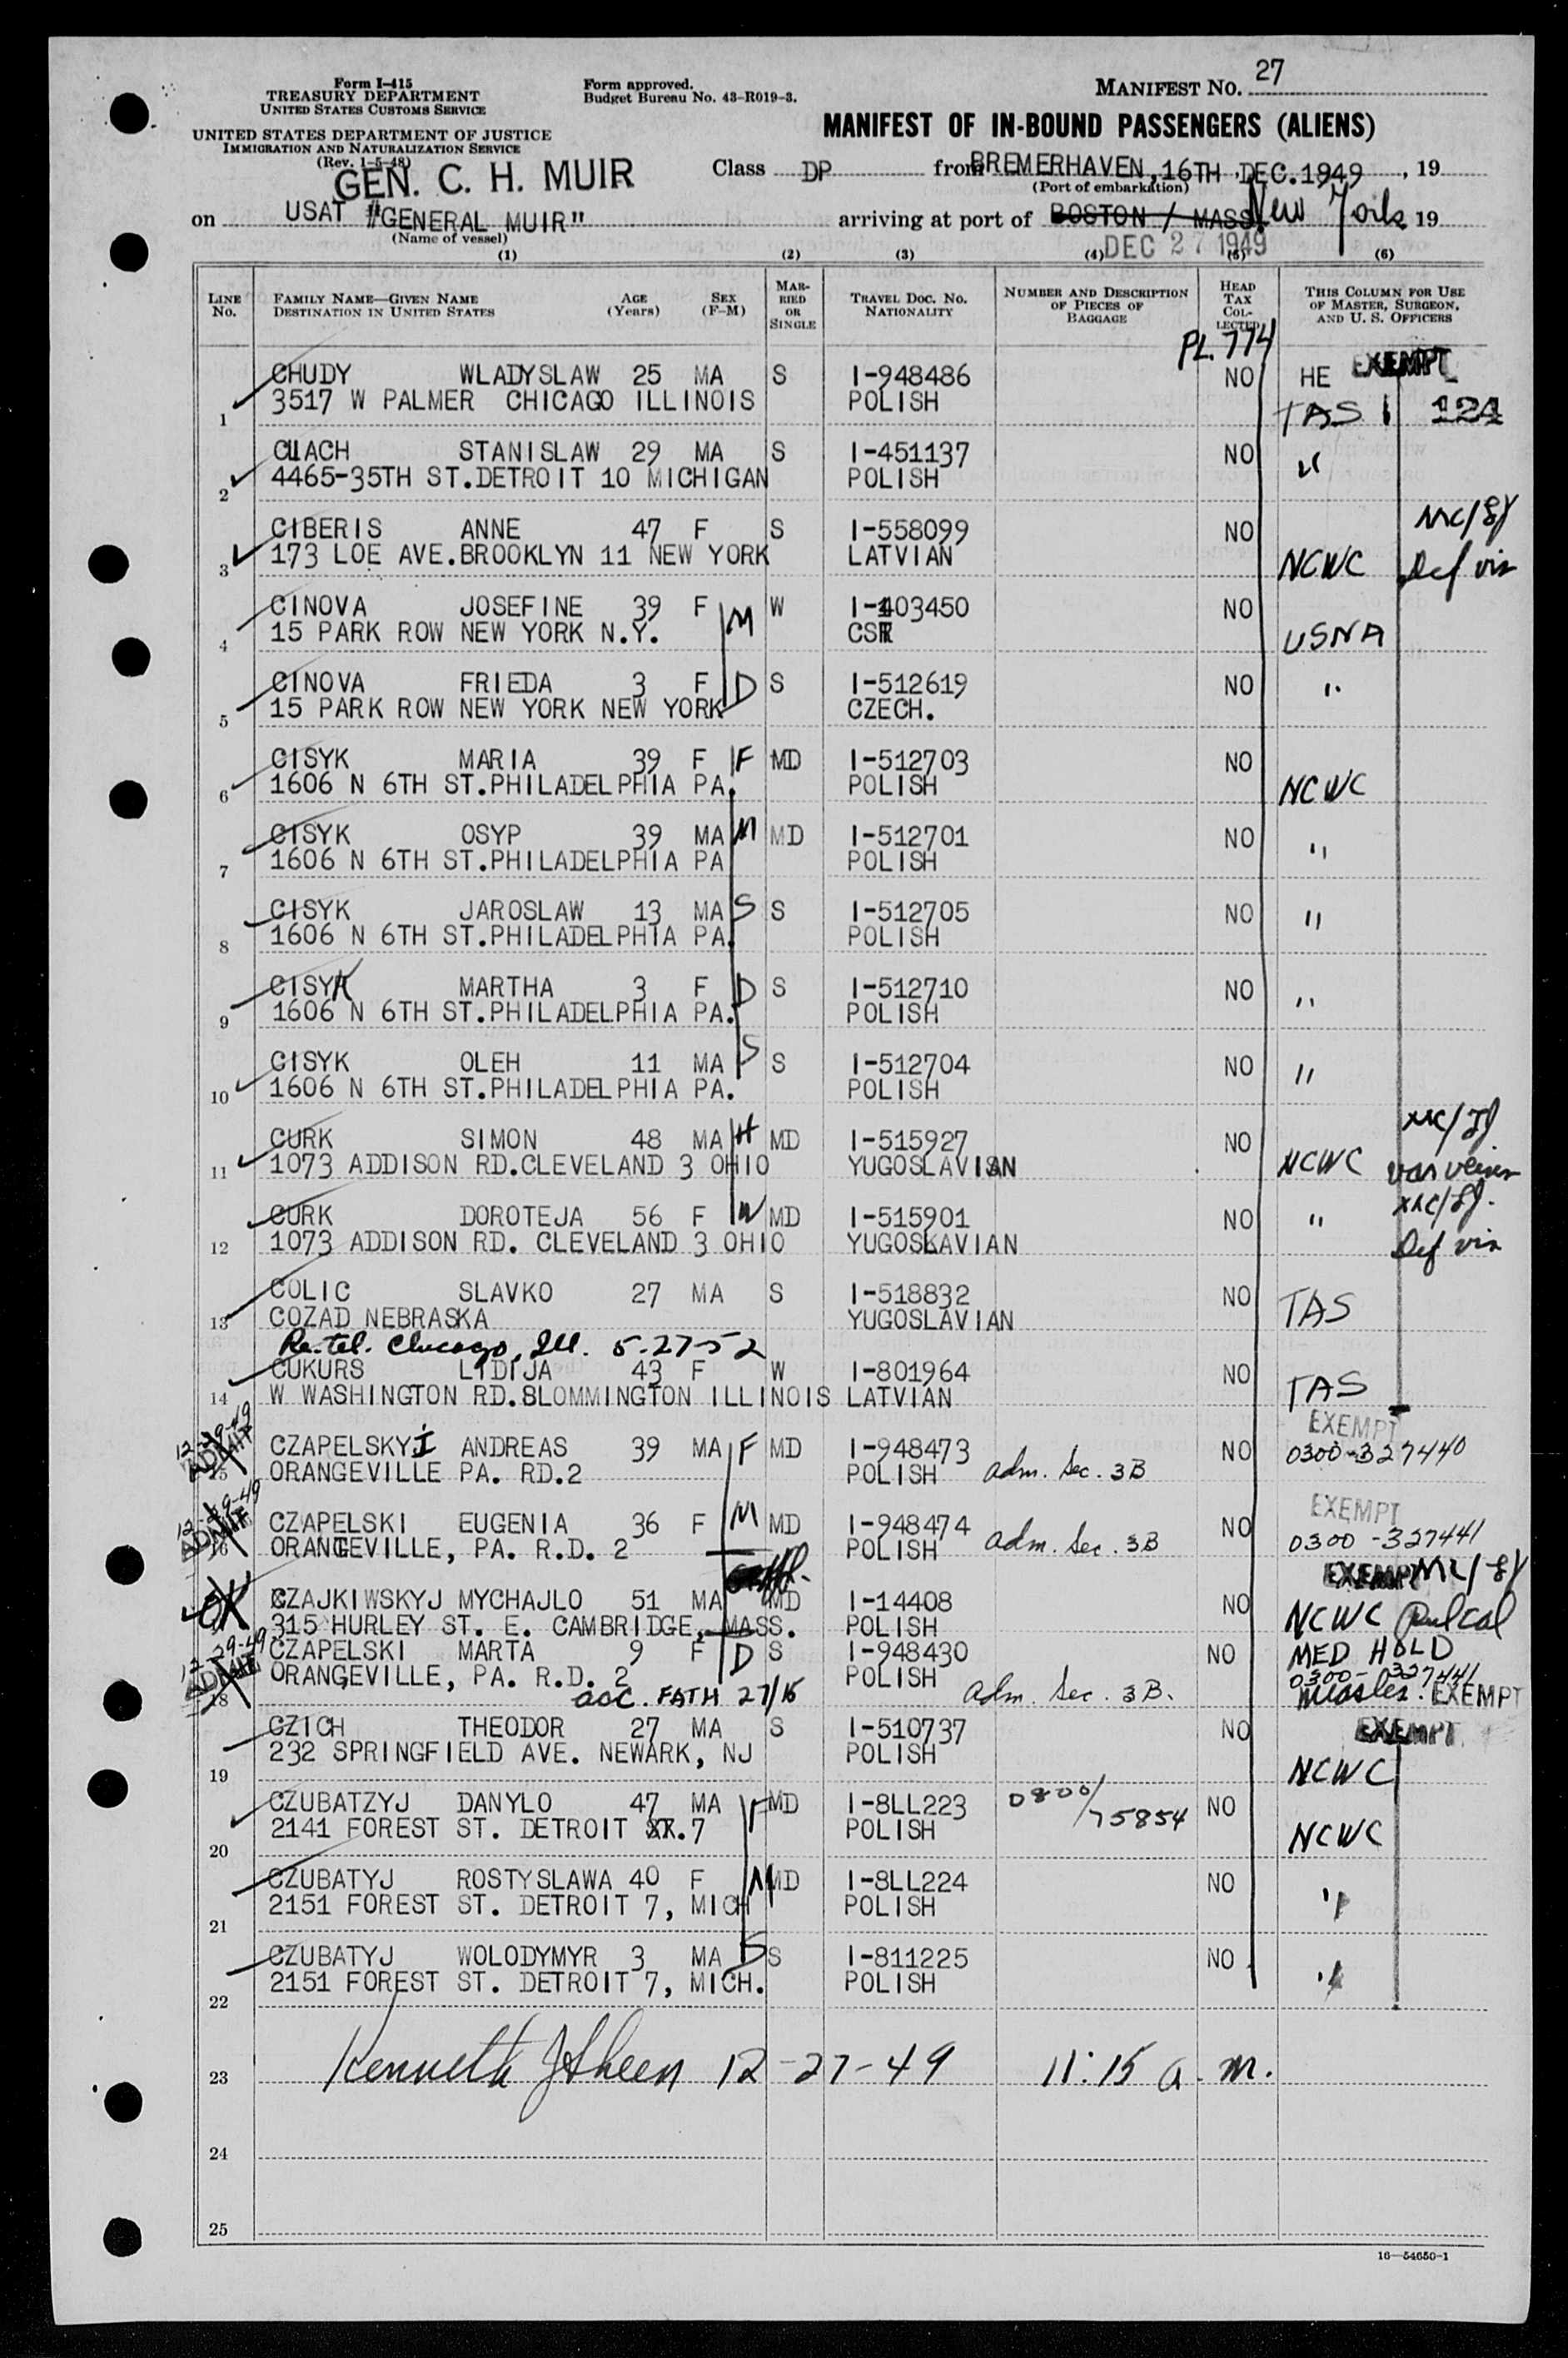 Form I-415
TREASURY DEPARTMENT
UNITED STATES CUSTOMS SERVICE
UNITED STATES DEPARTMENT OF JUSTICE
IMMIGRATION AND NATURALIZATION SERVICE
(Rev. 1-5-48)
Form approved.
Budget Bureau No. 43-R019-3.
MANIFEST NO. 27
MANIFEST OF IN-BOUND PASSENGERS (ALIENS)
GEN. C. H. MUIR
Class DP from BREMERHAVEN, 16TH DEC. 1949, 19
(Port of embarkation)
on USAT "GENERAL MUIR" arriving at port of BOSTON / MASS. New York 19
(Name of vessel)
DEC 27 1949
(1) (2) (3) (4) (5) (6)
LINE NO. FAMILY NAME—GIVEN NAME DESTINATION IN UNITED STATES AGE (Years) SEX (F-M) MARRIED OR SINGLE TRAVEL DOC. NO. NATIONALITY NUMBER AND DESCRIPTION OF PIECES OF BAGGAGE HEAD TAX COLLECTED THIS COLUMN FOR USE OF MASTER, SURGEON, AND U. S. OFFICERS
PL. 774
CHUDY WLADYSLAW 25 MA S I-948486 NO HE EXEMPT
1 3517 W PALMER CHICAGO ILLINOIS POLISH TAS 124
STANISLAW 29 MA S I-451137 NO "
2 4465-35TH ST.DETROIT 10 MICHIGAN POLISH
CIBERIS ANNE 47 F S I-558099 NO
3 173 LOE AVE.BROOKLYN 11 NEW YORK LATVIAN NCWC Def vis
CINOVA JOSEFINE 39 F M W I-403450 NO
4 15 PARK ROW NEW YORK N.Y. CSR USNA
CINOVA FRIEDA 3 F D S I-512619 NO "
5 15 PARK ROW NEW YORK NEW YORK CZECH.
CISYK MARIA 39 F F MD I-512703 NO
6 1606 N 6TH ST.PHILADELPHIA PA. POLISH NCWC
CISYK OSYP 39 MA M MD I-512701 NO "
7 1606 N 6TH ST.PHILADELPHIA PA POLISH
CISYK JAROSLAW 13 MA S S I-512705 NO "
8 1606 N 6TH ST.PHILADELPHIA PA. POLISH
CISYK MARTHA 3 F D S I-512710 NO "
9 1606 N 6TH ST.PHILADELPHIA PA. POLISH
CISYK OLEH 11 MA S S I-512704 NO "
10 1606 N 6TH ST.PHILADELPHIA PA. POLISH
CURK SIMON 48 MA H MD I-515927 NO
11 1073 ADDISON RD.CLEVELAND 3 OHIO YUGOSLAVIAN NCWC
CURK DOROTEJA 56 F W MD I-515901 NO "
12 1073 ADDISON RD. CLEVELAND 3 OHIO YUGOSKAVIAN Def vis
COLIC SLAVKO 27 MA S I-518832 NO TAS
13 COZAD NEBRASKA YUGOSLAVIAN
Re-tel. Chicago, Ill. 5-27-52
CUKURS LIDIJA 43 F W I-801964 NO TAS
14 W WASHINGTON RD.BLOMMINGTON ILLINOIS LATVIAN
12-29-49 ADMIT
EXEMPT
CZAPELSKYI ANDREAS 39 MA F MD I-948473 NO 0300-327440
15 ORANGEVILLE PA. RD.2 POLISH adm. Sec. 3B
12-29-49 ADMIT
EXEMPT
CZAPELSKI EUGENIA 36 F M MD I-948474 NO 0300-327441
16 ORANGEVILLE, PA. R.D. 2 POLISH adm. Sec. 3B
EXEMPT
CZAJKIWSKYJ MYCHAJLO 51 MA MD I-14408 NO NCWC
315 HURLEY ST. E. CAMBRIDGE, MASS. POLISH
12-29-49 ADMIT
CZAPELSKI MARTA 9 F D S I-948430 NO MED HOLD
ORANGEVILLE, PA. R.D. 2 POLISH 0300-327441
18 acc. FATH 27/15 adm. Sec. 3B. Measles. EXEMPT
CZICH THEODOR 27 MA S I-510737 NO EXEMPT
232 SPRINGFIELD AVE. NEWARK, NJ POLISH
19 NCWC
CZUBATZYJ DANYLO 47 MA F MD I-8LL223 0800/75854 NO
2141 FOREST ST. DETROIT 7 POLISH NCWC
20
CZUBATYJ ROSTYSLAWA 40 F M MD I-8LL224 NO "
2151 FOREST ST. DETROIT 7, MICH POLISH
21
CZUBATYJ WOLODYMYR 3 MA S S I-811225 NO "
2151 FOREST ST. DETROIT 7, MICH. POLISH
22
23 Kenneth J Sheen 12-27-49 11:15 a.m.
24
25
16—54650-1